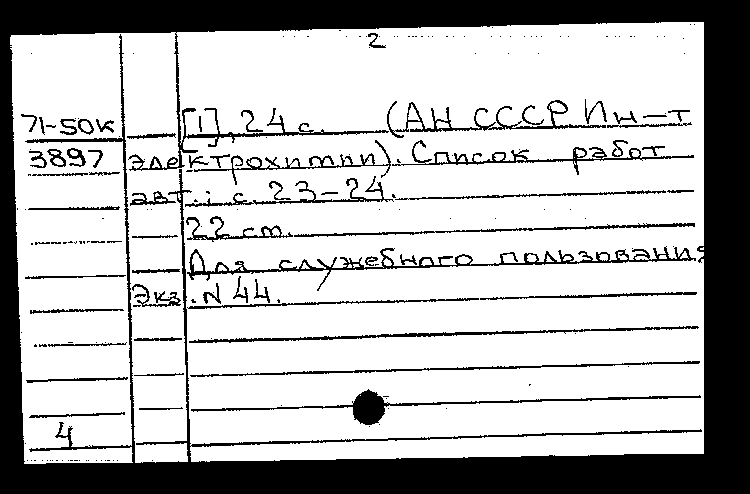 2
71-50к [1], 24 с. (АН СССР Ин-т
3897 электрохимии). Список работ
авт.: с. 23-24.
22 см.
Для служебного пользования
Экз. N 44.
4